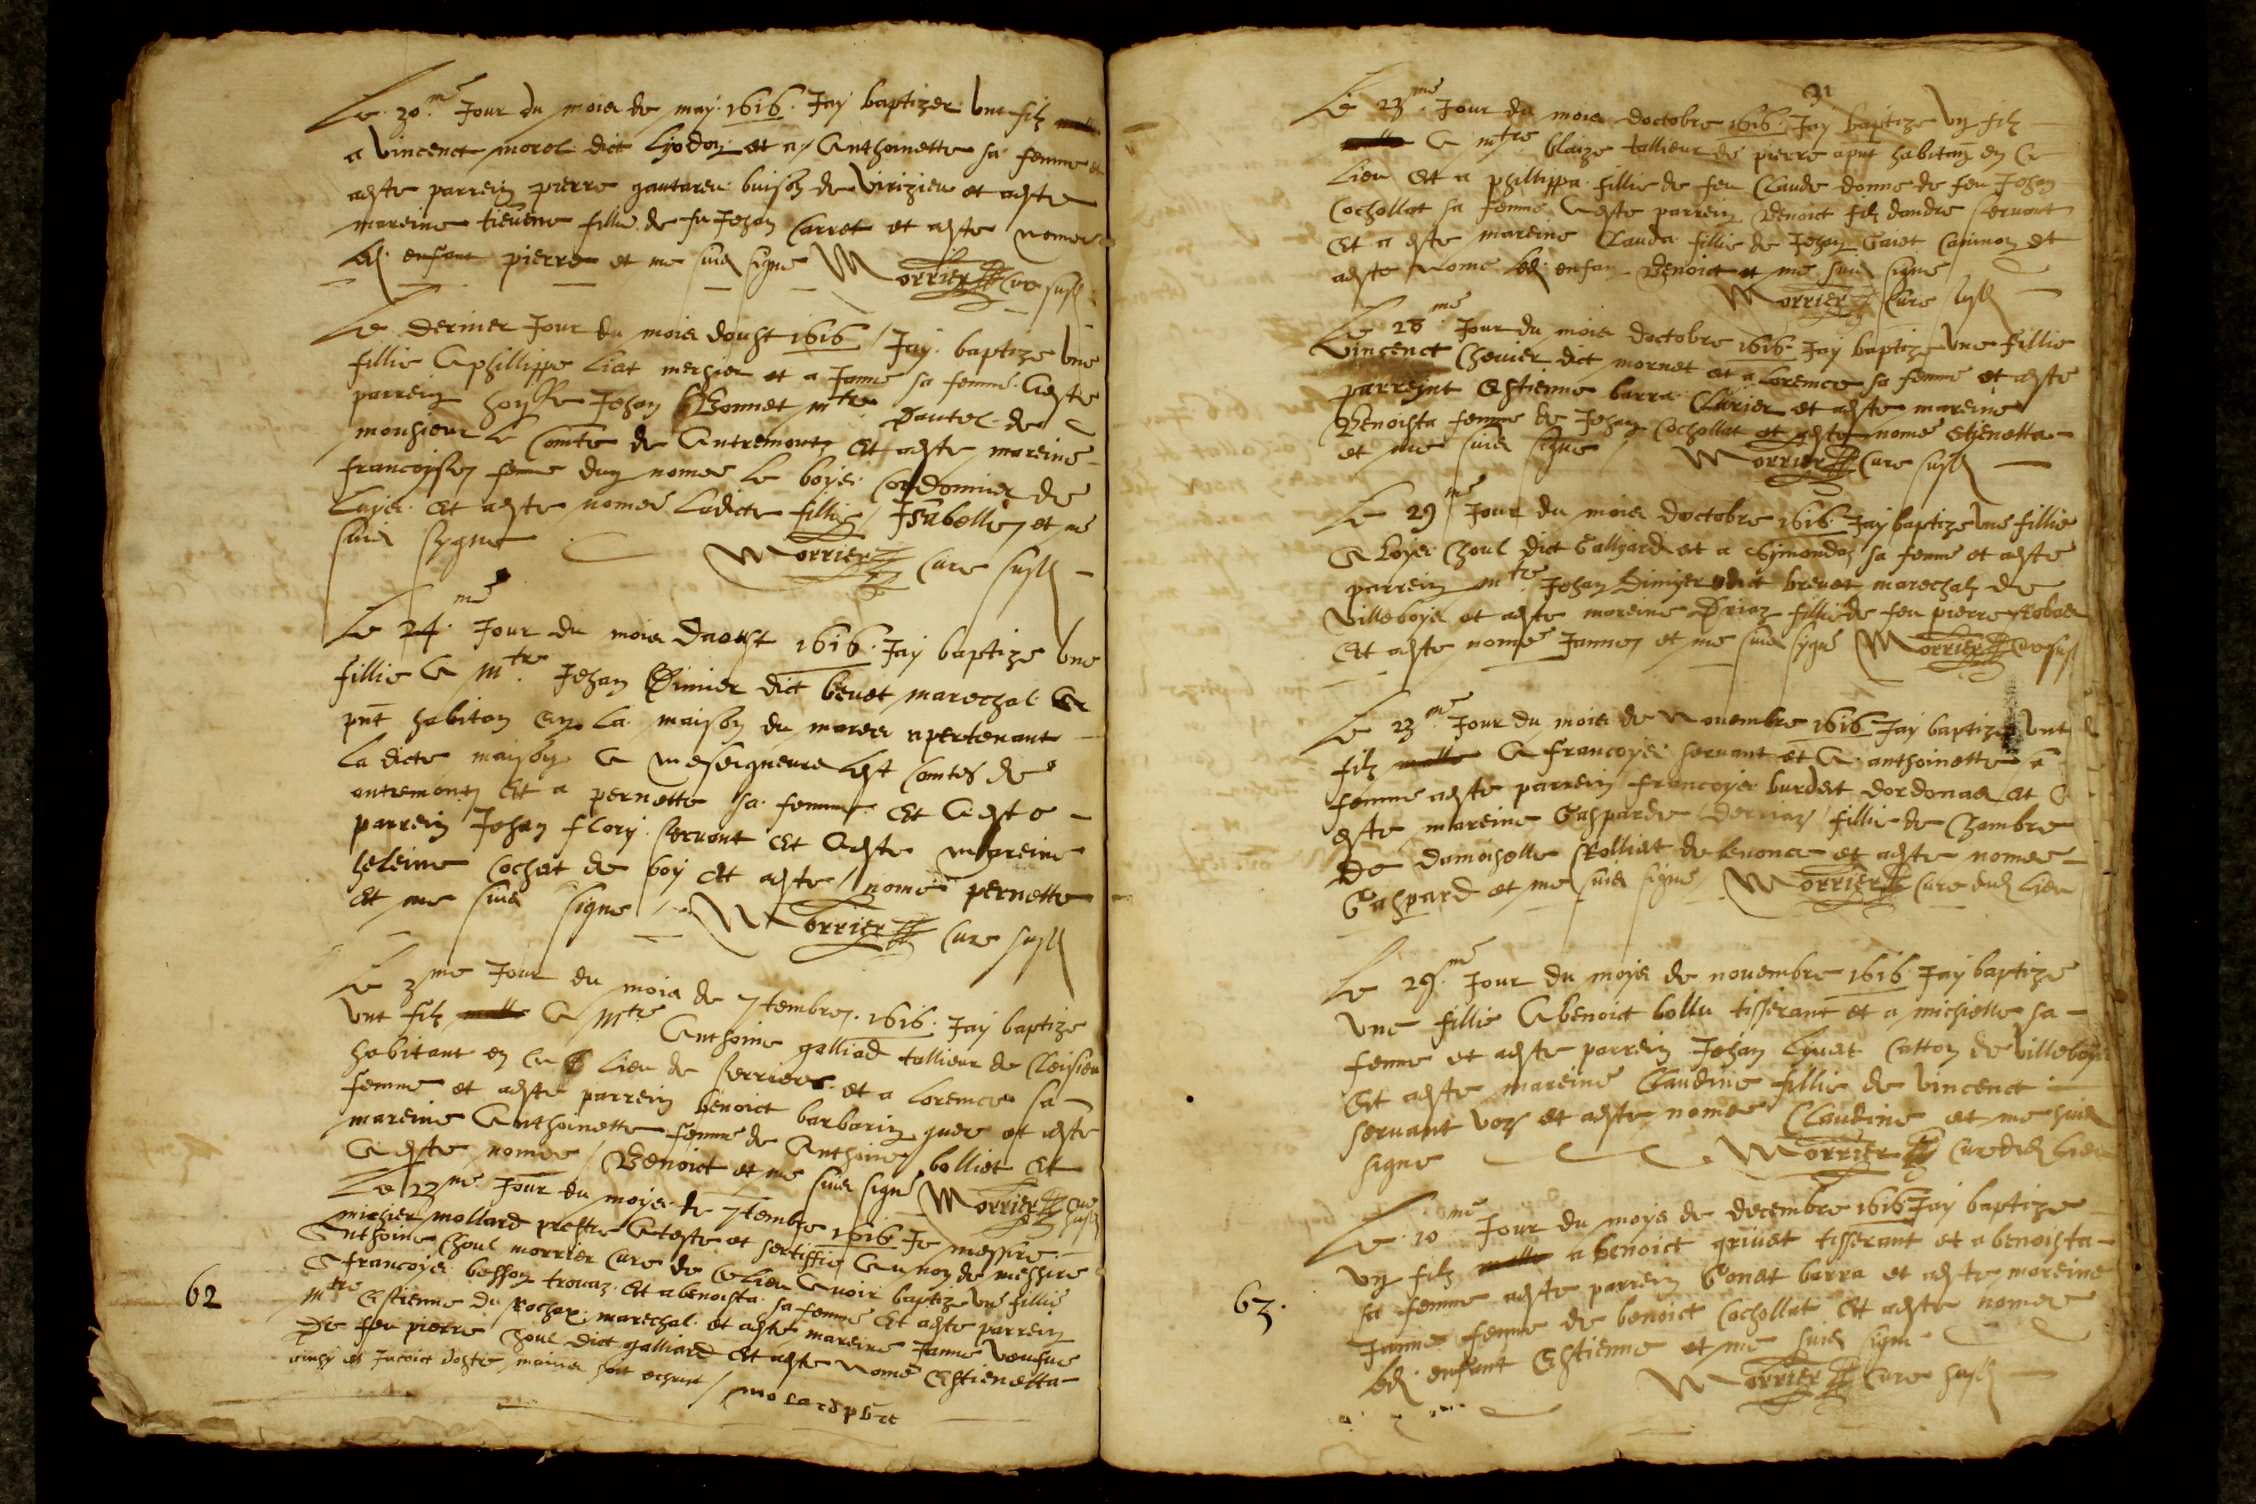 Le 30.me Jour du mois de may 1616 Jay baptizer unt filz
a vincenct morel dict Lyodoz et a Anthoinette sa femme et
aeste parrein pierre gautareu buison de virizieu et aeste
mareine tievene fillie de fu Jehan Carret et aeste nomee
led. enfant pierre et me suis signe Morrier Cure susd
Le dernier Jour du mois doust 1616 Jay baptize une
fillie A phillippe Liat mersier et a Janne sa femme Aeste
parrein Jehan Bonnet mtre dautel de
monsieur le Comte de Antremontz Et aeste mareine
francoise femme dung nome le boyes Cordonnier de
Et aeste nomee Ladicte fillie Isabelle et me
suis sygne Morrier Cure susd
Le 24.me Jour du mois Daoust 1616 Jay baptize une
fillie A Mtre Jehan Dimier dict bevet marechal A
pnt habitan En la maison du mares apertenant
la dicte maison A meseigneurs Lest Comtes de
antremontz Et a pernette sa femme Et Aeste
parrein Jehan flory servant Et Aeste mareine
heleine Cochet de boy Et aeste nome pernette
Et me suis signe Morrier Cure susd
Le 3me Jour du mois de 7tembre 1616 Jay baptize
unt filz A Mtre Anthoine galliad tallieur de Cleisieu
habitant en Ce Lieu de serrieres et a Loremce sa
femme et aeste parrein benoict barbarin guere et aeste
mareine Anthoinette femme de Anthoine bolliet Et
Aeste nomee Benoict et me suis signe Morrier Cure susd
Le 22me Jour du moys de 7tembre 1616 Je messire
michier mollard prestre Ateste et sertiffie Au non de messire
Anthoine Choul morrier Cure de Ce Lieu Avoir baptize une fillie
A francoys besson trouaz Et a benoista sa femme Et aeste parrein
mtre Estienne du Rochex marechal et aeste mareine Janne veufve
De feu pierre Choul dict galliard Et aeste nome Estienetta
ainsy est mollard pbre
62
31
Le 23me Jour du mois doctobre 1616 Jay baptize ung filz
A mtre blaize tallieur de pierre apnt habitant en Ce
Lieu Et a phillippa fillie de feu Claude donne de feu Jehan
Cochollat sa femme Aeste parrein Benoict filz dandre servant
Et a este mareine Clauda fillie de Jehan Gaiet Et
aeste Nome led. enfan Benoict et me suis signe
Morrier Cure susd
Le 28me Jour du mois doctobre 1616 Jay baptize une fillie
vincenct Chevier dict mornet et a Loremce sa femme et aeste
parreint Estienne barra Clurier et aeste mareine
Benoista femme de Jehan Cochollat et aeste nome Etienetta
et me suis signe Morrier Cure susd
Le 29me Jour du mois doctobre 1616 Jay baptize une fillie
A Loys Choul dict Gallyard et a Symondaz sa femme et aeste
parrein mtre Jehan Dimyer dict brevet marechalz de
villeboys et aeste mareine Driaz fillie de feu pierre Robas
Et aeste nomee Janne et me suis sygne Morrier Cure susd
Le 23me Jour du mois de Novembre 1616 Jay baptize unt
filz A francoys servant et A anthoinette
femme aeste parrein francoys burdet dordonas et
este mareine Gasparde Derriaz fillie de Chambre
de damoiselle Rolliet de benonce et aeste nomee
Gaspard et me suis signe Morrier Cure dud Lieu
Le 29me Jour du moys de novembre 1616 Jay baptize
une fillie A benoict bollu tisserant et a michielle sa
femme et aeste parrein Jehan Lyvet Catton de villeboys
Et aeste mareine Claudine fillie de vincenct
servant voz et aeste nomee Claudine et me suis
signe Morrier Cure dud Lieu
Le 10me Jour du moys de decembre 1616 Jay baptize
ung filz a benoict grivet tisserant et a benoista
sa femme aeste parrein Gonet barra et aeste mareine
Janne femme de benoict Cochollat Et aeste nomee
led. enfant Estienne et me suis signe
Morrier Cure susd
63.